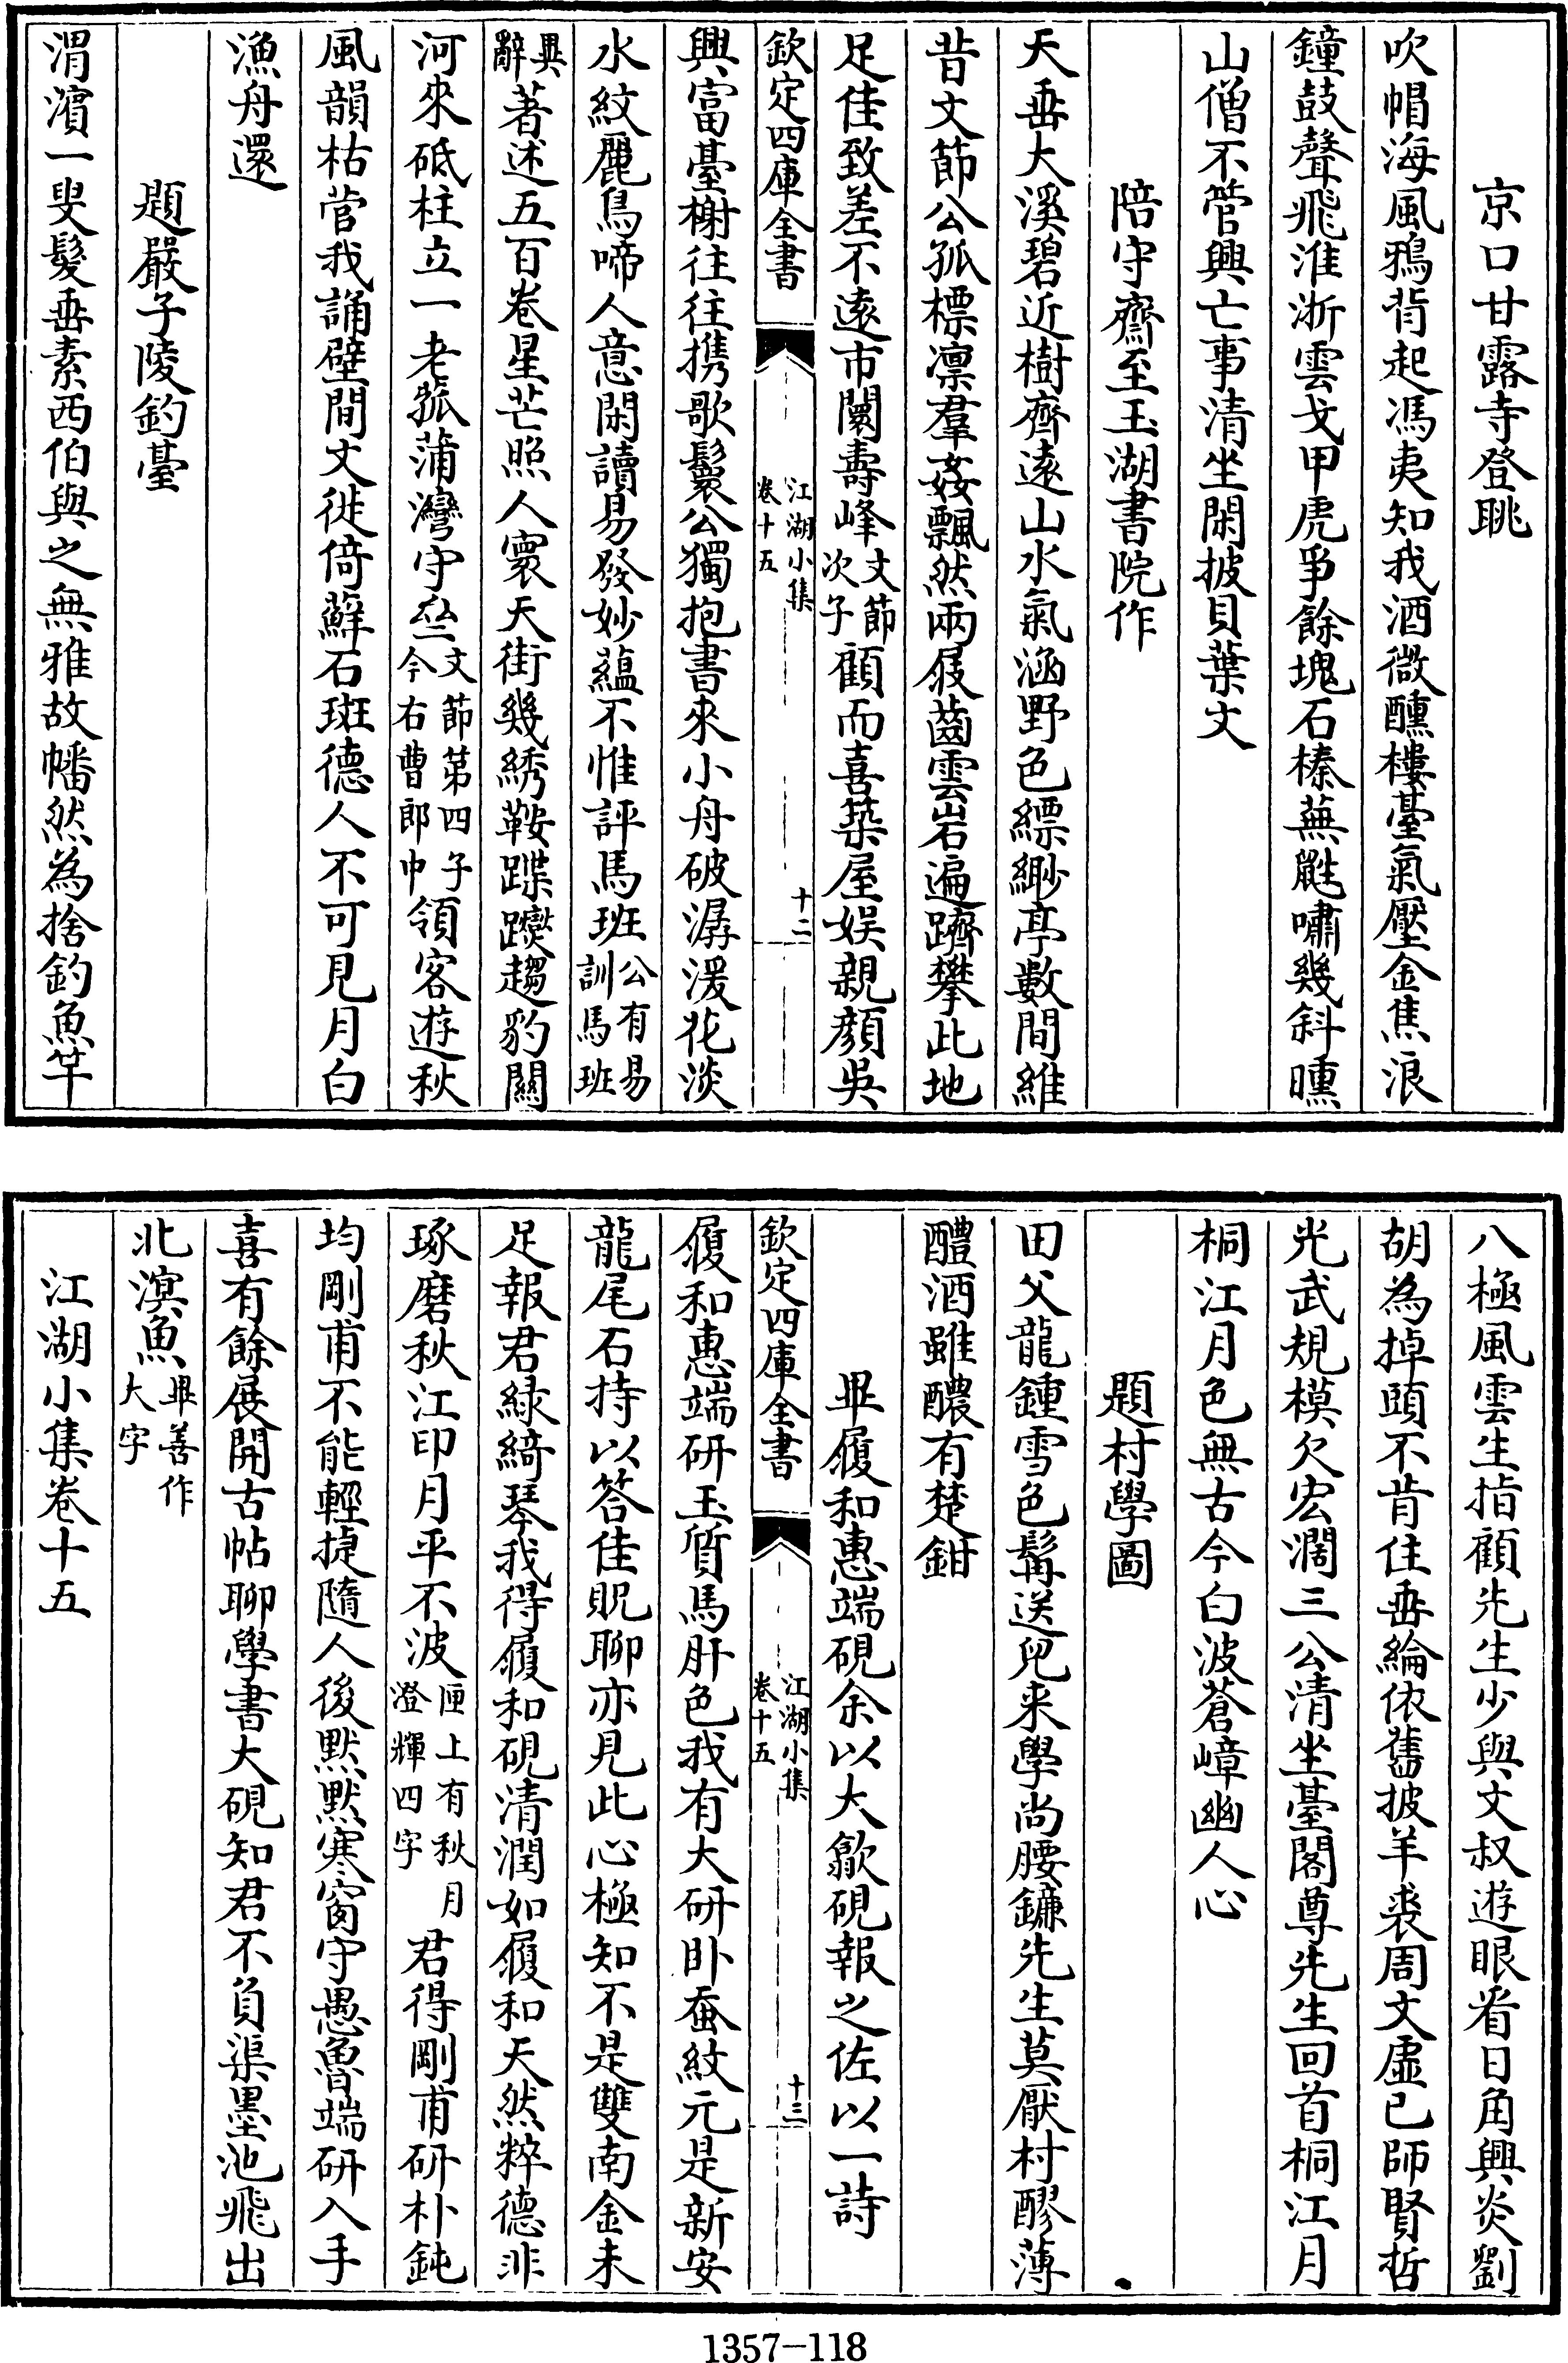 京口甘露寺登眺
吹帽海風鴉背起馮夷知我酒微醺樓臺氣壓金焦浪
鐘鼓聲飛淮浙雲戈甲虎爭餘塊石榛蕪鼪嘯幾斜曛
山僧不管興亡事清坐閑披貝葉文
陪守齋至玉湖書院作
天垂大溪碧近樹齊遠山水氣涵野色縹緲亭數間維
昔文節公孤標凛羣姦飄然兩屐齒雲岩遍躋攀此地
足佳致差不遠市闤壽峰文節次子顧而喜築屋娱親顔吳
欽定四庫全書
江湖小集
卷十五
十二
興富臺榭往往携歌鬟公獨抱書來小舟破潺湲花淡
水紋麗鳥啼人意閑讀易發妙蘊不惟評馬班公有易訓馬班
異辭著述五百巻星芒照人寰天街幾綉鞍蹀躞趨豹關
河來砥柱立一老孤蒲灣守坐文節第四子今右曹郎中領客遊秋
風韻枯菅我誦壁間文徙倚蘚石斑德人不可見月白
漁舟還
題嚴子陵釣臺
渭濱一叟髮垂素西伯與之無雅故幡然為捨釣魚竿
八極風雲生指顧先生少與文叔遊眼看日角興炎劉
胡為掉頭不肯住垂綸依舊披羊裘周文虛已師賢哲
光武規模欠宏濶三公清坐臺閣尊先生回首桐江月
桐江月色無古今白波蒼嶂幽人心
題村學圖
田父龍鍾雪色髯送兒来學尚腰鐮先生莫厭村醪薄
醴酒雖醲有楚鉗
畢履和惠端硯余以大歙硯報之佐以一詩
欽定四庫全書
江湖小集
卷十五
十三
履和惠端研玉質馬肝色我有大研卧蚕紋元是新安
龍尾石持以答佳貺聊亦見此心極知不是雙南金未
足報君緑綺琴我得履和硯清潤如履和天然粹德非
琢磨秋江印月平不波匣上有秋月澄輝四字君得剛甫研朴鈍
均剛甫不能輕捷隨人後默默寒窗守愚魯端研入手
喜有餘展開古帖聊學書大硯知君不負渠墨池飛出
北溟魚畢善作大字
江湖小集卷十五
1357-118